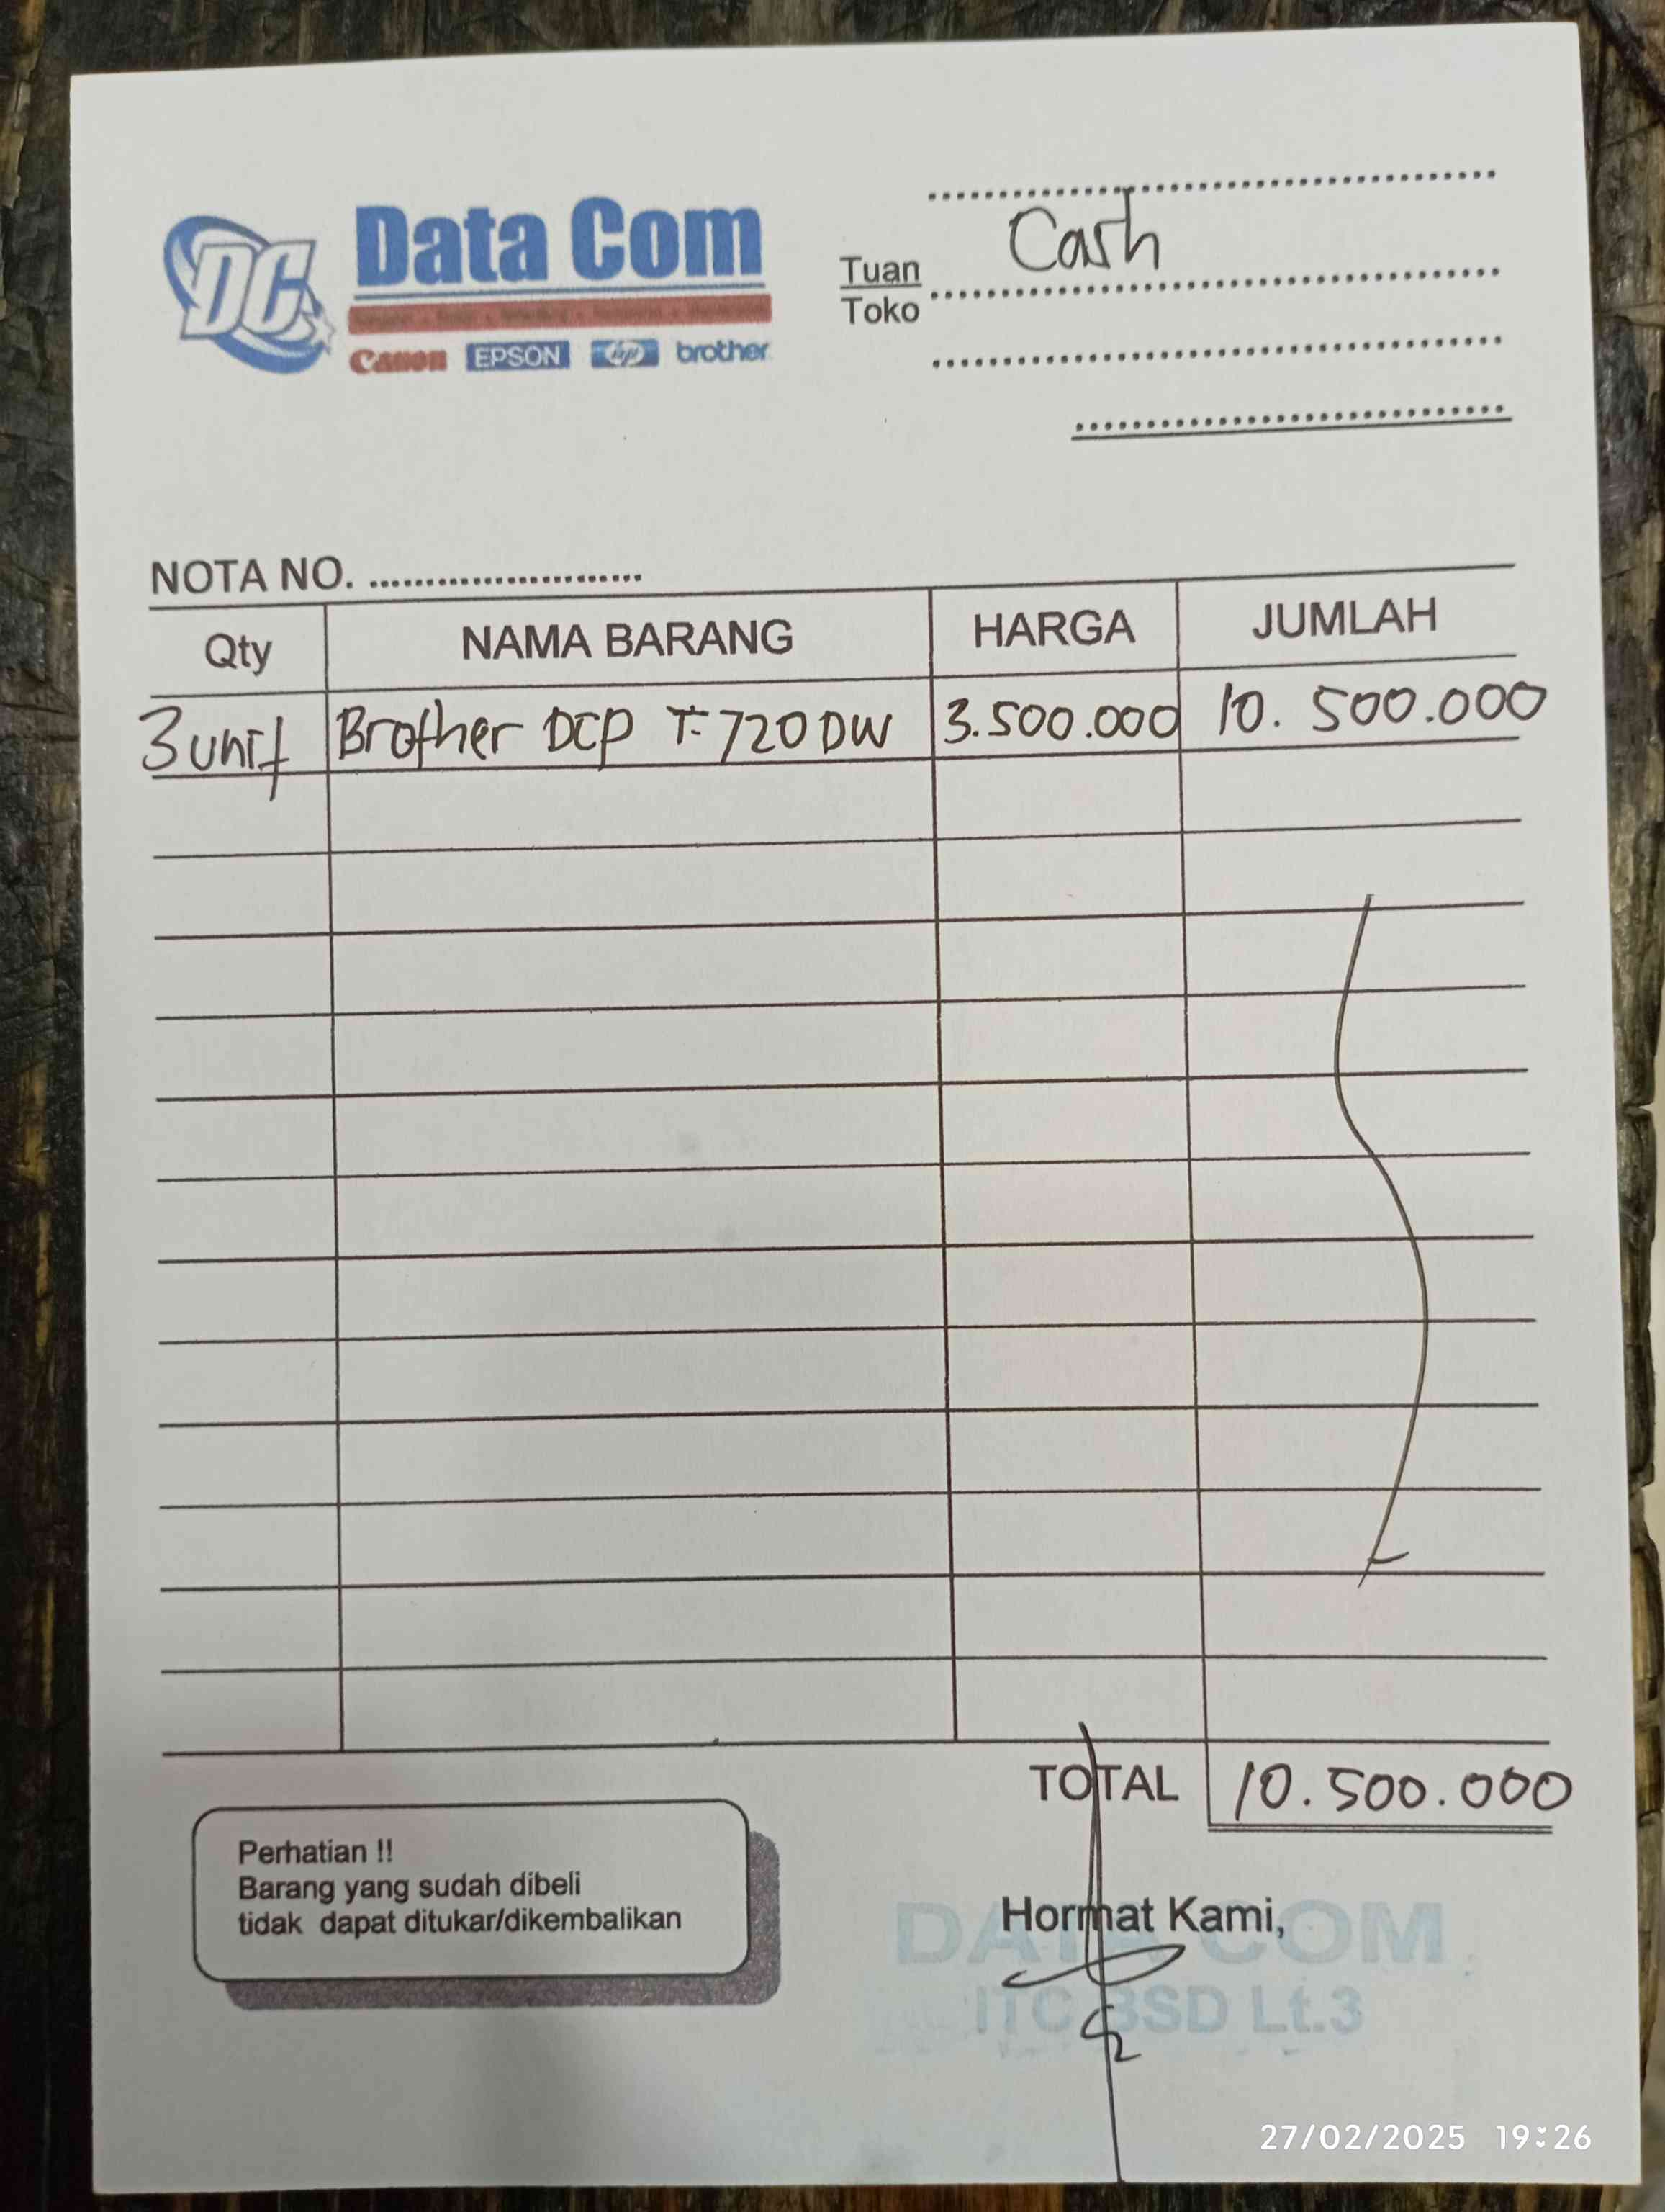 DC Data Com
Canon EPSON hp brother
Cash
Tuan
Toko
NOTA NO. ........................
Qty NAMA BARANG HARGA JUMLAH
3 unit Brother DCP T-720DW 3.500.000 10.500.000
TOTAL 10.500.000
Perhatian !!
Barang yang sudah dibeli
tidak dapat ditukar/dikembalikan
Hormat Kami,
DATA COM
ITC BSD Lt.3
27/02/2025 19:26